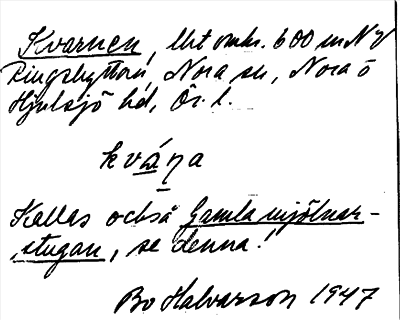 Kvarnen, lht omkr. 600 m NV
Ringshyttan, Nora sn, Nora o
Hjulsjö hd, Ör. l.
kváṇa
Kallas också Gamla mjölnar-
stugan, se denna!
Bo Halvarson 1947